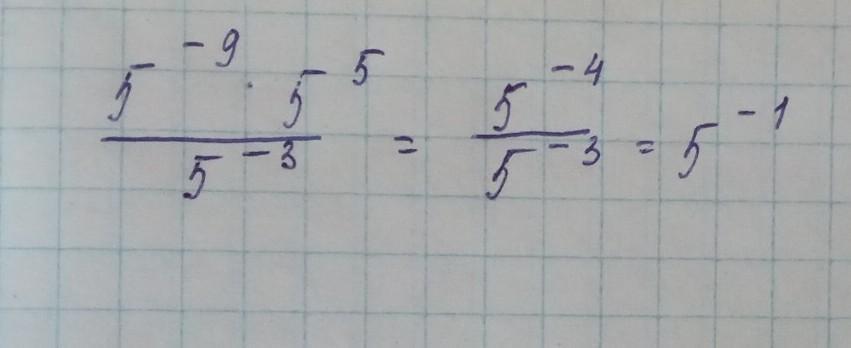 5^{-9} · 5^{5} / 5^{-3} = 5^{-4} / 5^{-3} = 5^{-1}